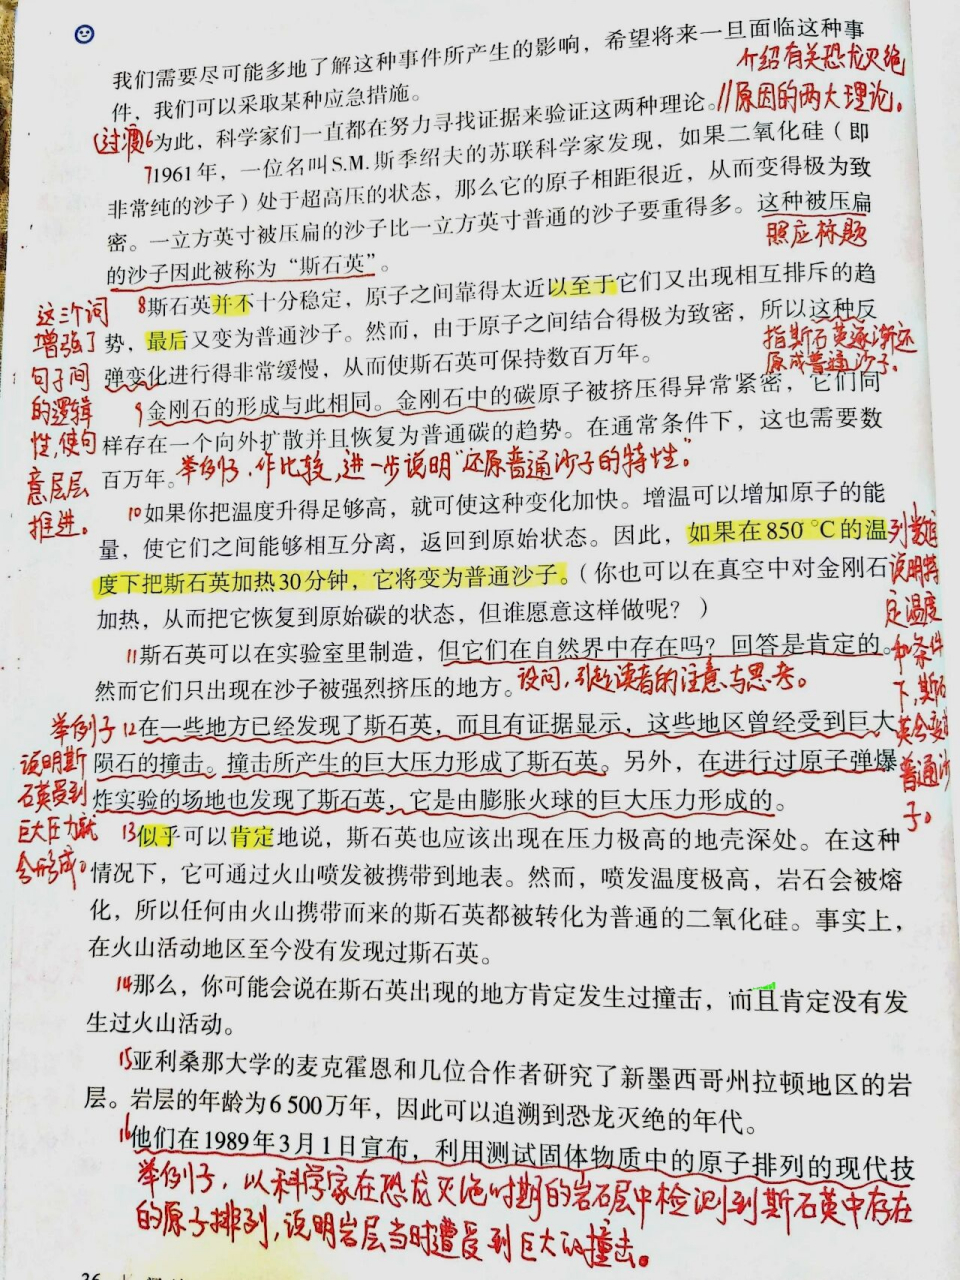 我们需要尽可能多地了解这种事件所产生的影响，希望将来一旦面临这种事
介绍有关恐龙灭绝
件，我们可以采取某种应急措施。
//原因的两大理论。
(过渡)6为此，科学家们一直都在努力寻找证据来验证这两种理论。
71961年，一位名叫S.M.斯季绍夫的苏联科学家发现，如果二氧化硅（即
非常纯的沙子）处于超高压的状态，那么它的原子相距很近，从而变得极为致
密。一立方英寸被压扁的沙子比一立方英寸普通的沙子要重得多。这种被压扁
照应标题
的沙子因此被称为“斯石英”。
8斯石英并不十分稳定，原子之间靠得太近以至于它们又出现相互排斥的趋
势，最后又变为普通沙子。然而，由于原子之间结合得极为致密，所以这种反
指斯石英逐渐还
原成普通沙子。
弹变化进行得非常缓慢，从而使斯石英可保持数百万年。
这三个词
增强了
句子间
的逻辑
性，使句
意层层
推进。
9金刚石的形成与此相同。金刚石中的碳原子被挤压得异常紧密，它们同
样存在一个向外扩散并且恢复为普通碳的趋势。在通常条件下，这也需要数
百万年。
举例子，作比较，进一步说明“还原普通沙子的特性”。
10如果你把温度升得足够高，就可使这种变化加快。增温可以增加原子的能
量，使它们之间能够相互分离，返回到原始状态。因此，如果在850℃的温
度下把斯石英加热30分钟，它将变为普通沙子。（你也可以在真空中对金刚石
加热，从而把它恢复到原始碳的状态，但谁愿意这样做呢？）
列数据
说明特
定温度
和条件
下，斯石
英会变成
普通沙
子。
11斯石英可以在实验室里制造，但它们在自然界中存在吗？回答是肯定的。
然而它们只出现在沙子被强烈挤压的地方。
设问，引起读者的注意与思考。
12在一些地方已经发现了斯石英，而且有证据显示，这些地区曾经受到巨大
陨石的撞击。撞击所产生的巨大压力形成了斯石英。另外，在进行过原子弹爆
炸实验的场地也发现了斯石英，它是由膨胀火球的巨大压力形成的。
举例子
说明斯
石英受到
巨大压力就
会形成。
13似乎可以肯定地说，斯石英也应该出现在压力极高的地壳深处。在这种
情况下，它可通过火山喷发被携带到地表。然而，喷发温度极高，岩石会被熔
化，所以任何由火山携带而来的斯石英都被转化为普通的二氧化硅。事实上，
在火山活动地区至今没有发现过斯石英。
14那么，你可能会说在斯石英出现的地方肯定发生过撞击，而且肯定没有发
生过火山活动。
15亚利桑那大学的麦克霍恩和几位合作者研究了新墨西哥州拉顿地区的岩
层。岩层的年龄为6 500万年，因此可以追溯到恐龙灭绝的年代。
16他们在1989年3月1日宣布，利用测试固体物质中的原子排列的现代技
举例子，以科学家在恐龙灭绝时期的岩石层中检测到斯石英中存在
的原子排列，说明岩层当时遭受到巨大的撞击。